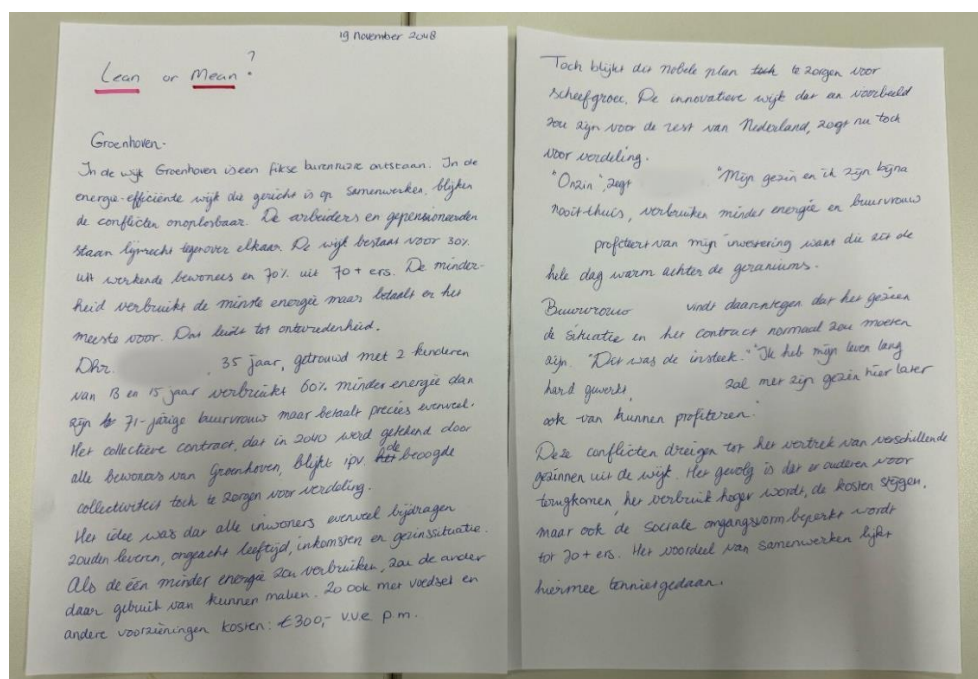 19 November 2048
Lean or Mean?
Groenhoven.
In de wijk Groenhoven is een fikse burenruzie ontstaan. In de
energie-efficiënde wijk die gericht is op samenwerken, blijken
de conflicten onoplosbaar. De arbeiders en gepensioneerden
staan lijnrecht tegenover elkaar. De wijk bestaat voor 30%
uit werkende bewoners en 70% uit 70+ ers. De minder-
heid verbruikt de minste energie maar betaalt er het
meeste voor. Dat leidt tot ontevredenheid.
Dhr. , 35 jaar, getrouwd met 2 kinderen
van 13 en 15 jaar verbruikt 60% minder energie dan
zijn 71-jarige buurvrouw maar betaalt precies evenveel.
Het collectieve contract, dat in 2040 werd getekend door
alle bewoners van Groenhoven, blijkt ipv. de beoogde
collectiviteit toch te zorgen voor verdeling.
Het idee was dat alle inwoners evenveel bijdragen
zouden leveren, ongeacht leeftijd, inkomsten en gezinssituatie.
Als de één minder energie zou verbruiken, zou de ander
daar gebruik van kunnen maken. Zo ook met voedsel en
andere voorzieningen kosten: €300,- v.v.e p.m.
Toch blijkt dit nobele plan toch te zorgen voor
scheefgroei. De innovatieve wijk dat een voorbeeld
zou zijn voor de rest van Nederland, zorgt nu toch
voor verdeling.
"Onzin", zegt "Mijn gezin en ik zijn bijna
nooit thuis, verbruiken minder energie en buurvrouw
profiteert van mijn investering want die zit de
hele dag warm achter de geraniums.
Buurvrouw vindt daarentegen dat het gezien
de situatie en het contract normaal zou moeten
zijn. "Dit was de insteek." "Ik heb mijn leven lang
hard gewerkt, zal met zijn gezin hier later
ook van kunnen profiteren."
Deze conflicten dreigen tot het vertrek van verschillende
gezinnen uit de wijk. Het gevolg is dat er ouderen voor
terugkomen, het verbruik hoger wordt, de kosten stijgen,
maar ook de sociale omgangsvorm beperkt wordt
tot 70+ ers. Het voordeel van samenwerken lijkt
hiermee tenietgedaan.